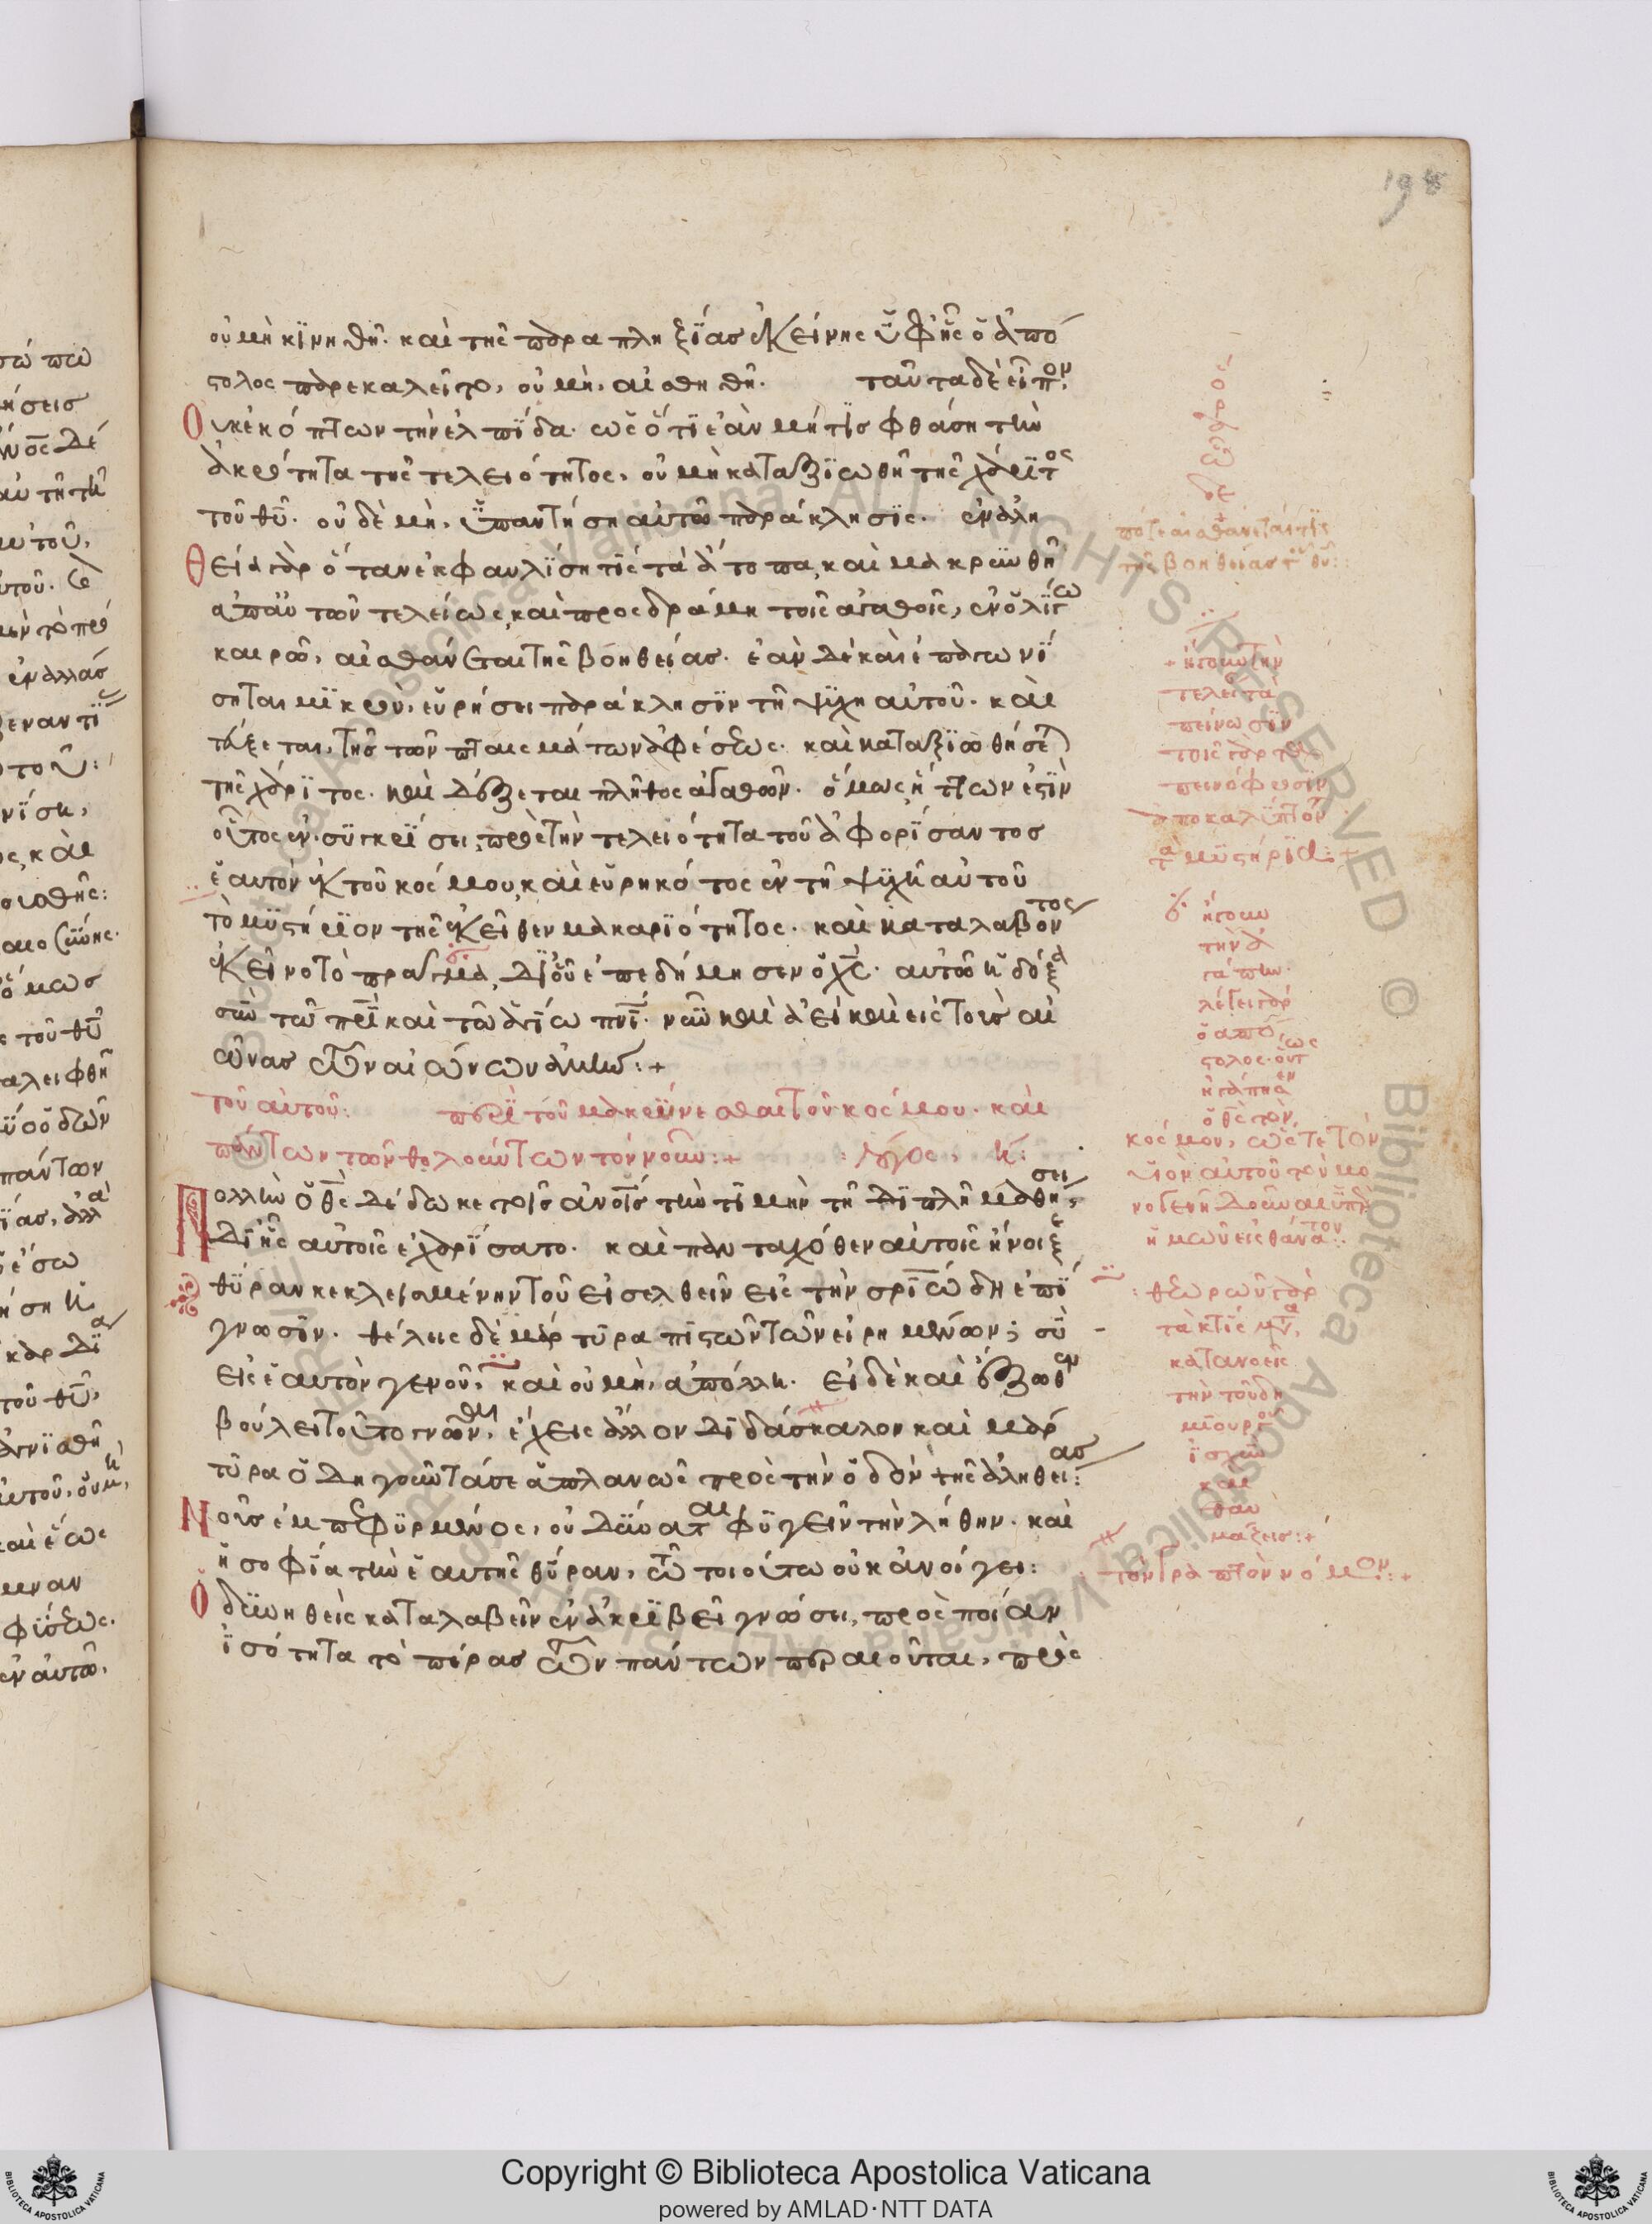 198
οὐ μὴ κϊνηθῆ. καὶ τῆς παραπληξΐας ἐκείνης ὑφ' ἧς ὁ ἀπό
στολος παρεκαλεῖτο, οὐ μὴ, αἰσθηθῆ. ταῦτα δὲ εἶπον,
Οὐκ ἐκόπτων τὴν ἐλπΐδα. ὡς ὅτϊ ἐὰν μή τϊς φθάση τὴν
ἀκρότητα τῆς τελειότητος, οὐ μὴ καταξϊωθῆ τῆς χάρϊτος
τοῦ θῦ. οὐδὲ μὴ, ὑπαντήση αὐτῶ παράκλησϊς. ἐν ἀλη
Θεία γὰρ ὅταν ἐκφαυλΐση τὶς τὰ ἄτοπα, καὶ μακρϋνθῆ
ἀπ' αὐτῶν τελείως, καὶ προσδράμη τοῖς ἀγαθοῖς, ἐν ὀλΐγω
καιρῶ, αἰσθάνεται τῆς βοηθείας. ἐὰν δὲ καὶ ἐπαγωνΐ
σηται μϊκρὸν, εὑρήσει παράκλησϊν τῆ ψϋχῆ αὐτοῦ. καὶ
τεύξεται, τῆς τῶν πταισμάτων ἀφέσεως. καὶ καταξϊωθήσεται
τῆς χάρϊτος. καὶ δέξεται πλῆθος ἀγαθῶν. ὅμως ἥττων ἐστϊν
οὗτος ἐν συγκρΐσει, πρὸς τὴν τελειότητα τοῦ ἀφορΐσαντος
ἑαυτὸν ἐκ τοῦ κόσμου, καὶ εὑρηκότος ἐν τῆ ψϋχῆ αὐτοῦ
τὸ μϋστήρϊον τῆς ἐκεῖθεν μακαρϊότητος. καὶ καταλαβόντος
ἐκεῖνο τὸ πρᾶγμα, δϊ' οὗ ἐπεδήμησεν ὁ χς. αὐτῶ ἡ δόξα
σὺν τῶ πρῒ καὶ τῶ ἁγΐω πνΐ. νῦν καὶ ἀεὶ καὶ εἰς τοὺς αἰ
ῶνας τῶν αἰώνων ἀμήν:+
τοῦ αὐτοῦ: περὶ τοῦ μακρϋνεσθαι τοῦ κόσμου. καὶ
πάντων τῶν θολούντων τὸν νοῦν:+ λόγος, κ:
Πολλὴν ὁ θς δέδωκε τοῖς ἀνοις τὴν τϊμὴν τῆ δϊπλῆ μαθήσει,
δϊ' ἧς αὐτοῖς ἐχαρΐσατο. καὶ πανταχόθεν αὐτοῖς ἤνοιξε
θύραν κεκλεισμένην τοῦ εἰσελθεῖν εἰς τὴν σρϊώδη ἐπΐ
γνωσϊν. θέλεις δὲ μάρτϋρα πϊστῶν τῶν εἰρημένων; σὺ
εἰς ἑαυτὸν γενοῦ, καὶ οὐ μὴ, ἀπόλλη. εἰ δὲ καὶ ἔξωθεν
βούλει τοῦτο γνῶναι, ἔχεις ἄλλον δϊδάσκαλον καὶ μάρ
τϋρα ὁδηγοῦντά σε ἀπλανῶς πρὸς τὴν ὁδὸν τῆς ἀληθείας:
Νοῦς ἐμπεφϋρμένος, οὐ δύναται φϋγεῖν τὴν λήθην. καὶ
ἡ σοφΐα τὴν ἑαυτῆς θύραν, τῶ τοιούτω οὐκ ἀνοίγει:
Ὁ δϋνηθεὶς καταλαβεῖν ἐν ἀκρϊβεῖ γνώσει, πρὸς ποίαν
ἰσότητα τὸ πέρας τῶν πάντων περαιοῦται, πρὸς
πότε αἰσθάνεταί τϊς
τῆς βοηθείας τοῦ θῦ:
+ ἤγουν τὴν
τελείαν τα
πείνωσϊν
τοῖς γὰρ τα
πεινόφροσϊν
ἀποκαλϋπτον
τὰ μϋστήρϊα:+
ἤγουν
τὴν ἀ
γάπην.
λέγει γὰρ
ὁ ἀπό
στολος. οὕτως
ἠγάπησεν
ὁ θς τὸν
κόσμον, ὡς τε τὸν
υϊὸν αὐτοῦ τὸν μο
νογενῆ δοῦναι ὑπὲρ
ἡμῶν εἰς θάνατον:
θεωρῶν γὰρ
τὰ κτϊσματα,
κατανοεῖς
τὴν τοῦ δη
μϊουργοῦ
ἰσχὺν
καὶ
θαυ
μάζεις:+
τὸν γραπτὸν νόμον:+